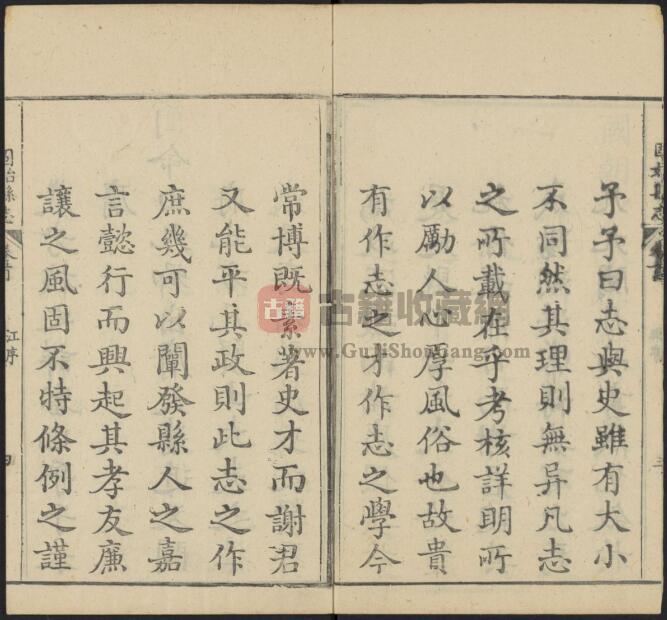 予予曰志與史雖有大小
不同然其理則無异凡志
之所載在乎考核詳明所
以勵人心厚風俗也故貴
有作志之才作志之學今
常博既素著史才而謝君
又能平其政則此志之作
庶幾可以闡發縣人之嘉
言懿行而興起其孝友廉
讓之風固不特條例之謹
固始縣志
卷首
江序
四
古籍收藏網
www.GuJiShouCang.com